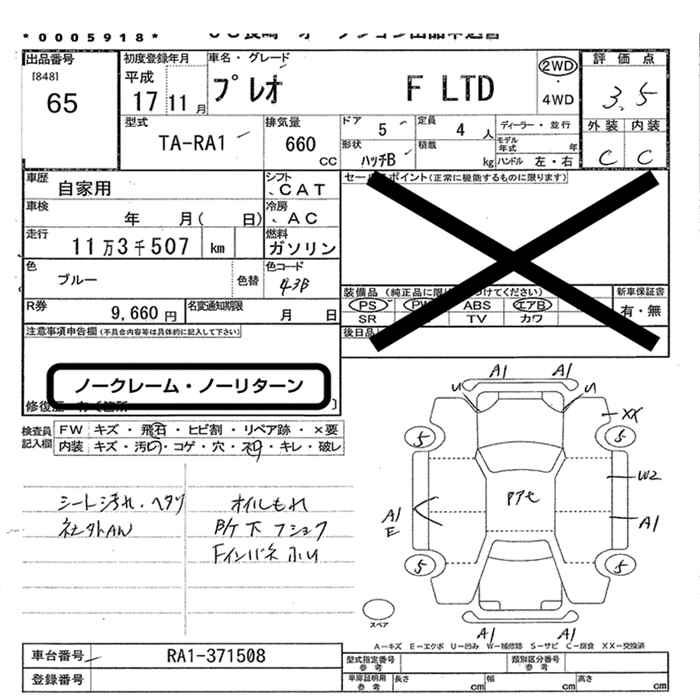 *0005918*
出品番号 [848] 65
初度登録年月 平成 17 11 月
車名・グレード プレオ F LTD
2WD 4WD
評価点 3.5
外装 内装
C C
型式 TA-RA1
排気量 660 CC
ドア 5
定員 4 人
形状 ハッチB
積載 kg
ディーラー・並行
モデル年式 年
ハンドル 左・右
車歴 自家用
シフト CAT
車検 年 月( 日)
冷房 AC
走行 11万3千507 km
燃料 ガソリン
色 ブルー 色替
色コード 43B
R券 9,660円
名変通知期限 月 日
セールスポイント(正常に機能するものに限ります)
装備品
PS PW ABS エアB
SR TV カワ
新車保証書 有・無
後日品
注意事項申告欄(不具合内容等は具体的に記入して下さい)
ノークレーム・ノーリターン
修復歴
検査員記入欄
FW キズ・飛石・ヒビ割・リペア跡・×要
内装 キズ・汚れ・コゲ・穴・キレ・破レ
シート汚れ・ヘタリ
社外AW
オイルもれ
下
A1 A1
U U
XX
5 5
W2
A1
E
A1
5 5
A1 A1
スペア
A-キズ E-エクボ U-凹み W-補修跡 S-サビ C-腐食 XX-交換済
車台番号 RA1-371508
登録番号
型式指定番号 参考
類別区分番号 参考
車庫証明用 参考
長さ cm 幅 cm 高さ cm